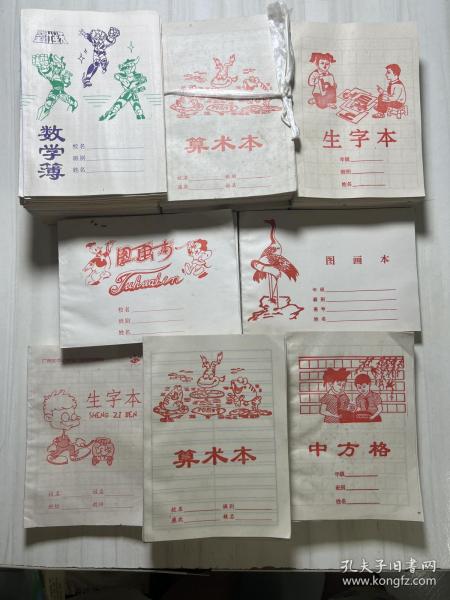 数学薄
校名
班别
姓名
算术本
校名 班别
座次 姓名
生字本
年级
班别
姓名
图画本
Tuhuaben
校名
班别
姓名
图画本
年级
班别
座号
姓名
生字本
SHENG ZI BEN
班级
校名 班别
座次 姓名
算术本
中方格
年级
班别
姓名
孔夫子旧书网
www.kongfz.com